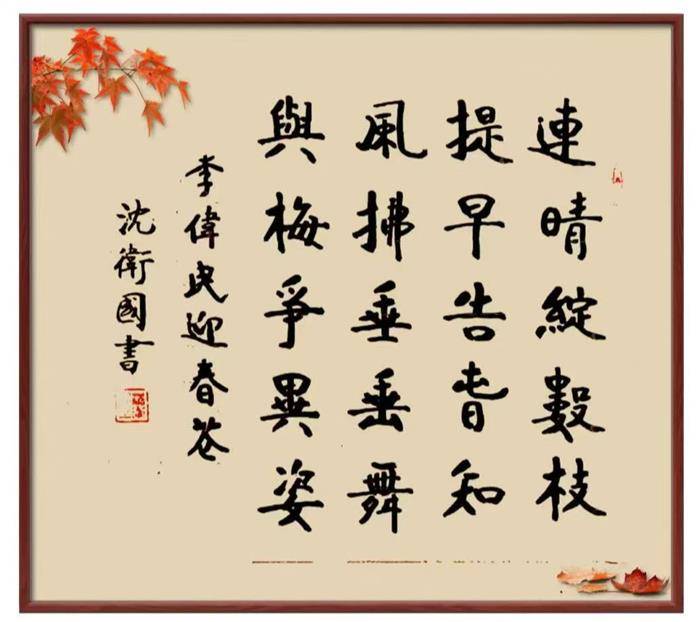 連晴綻數枝
提早告旾知
風拂垂垂舞
與梅爭異姿
李偉民迎春花
沈衛國書